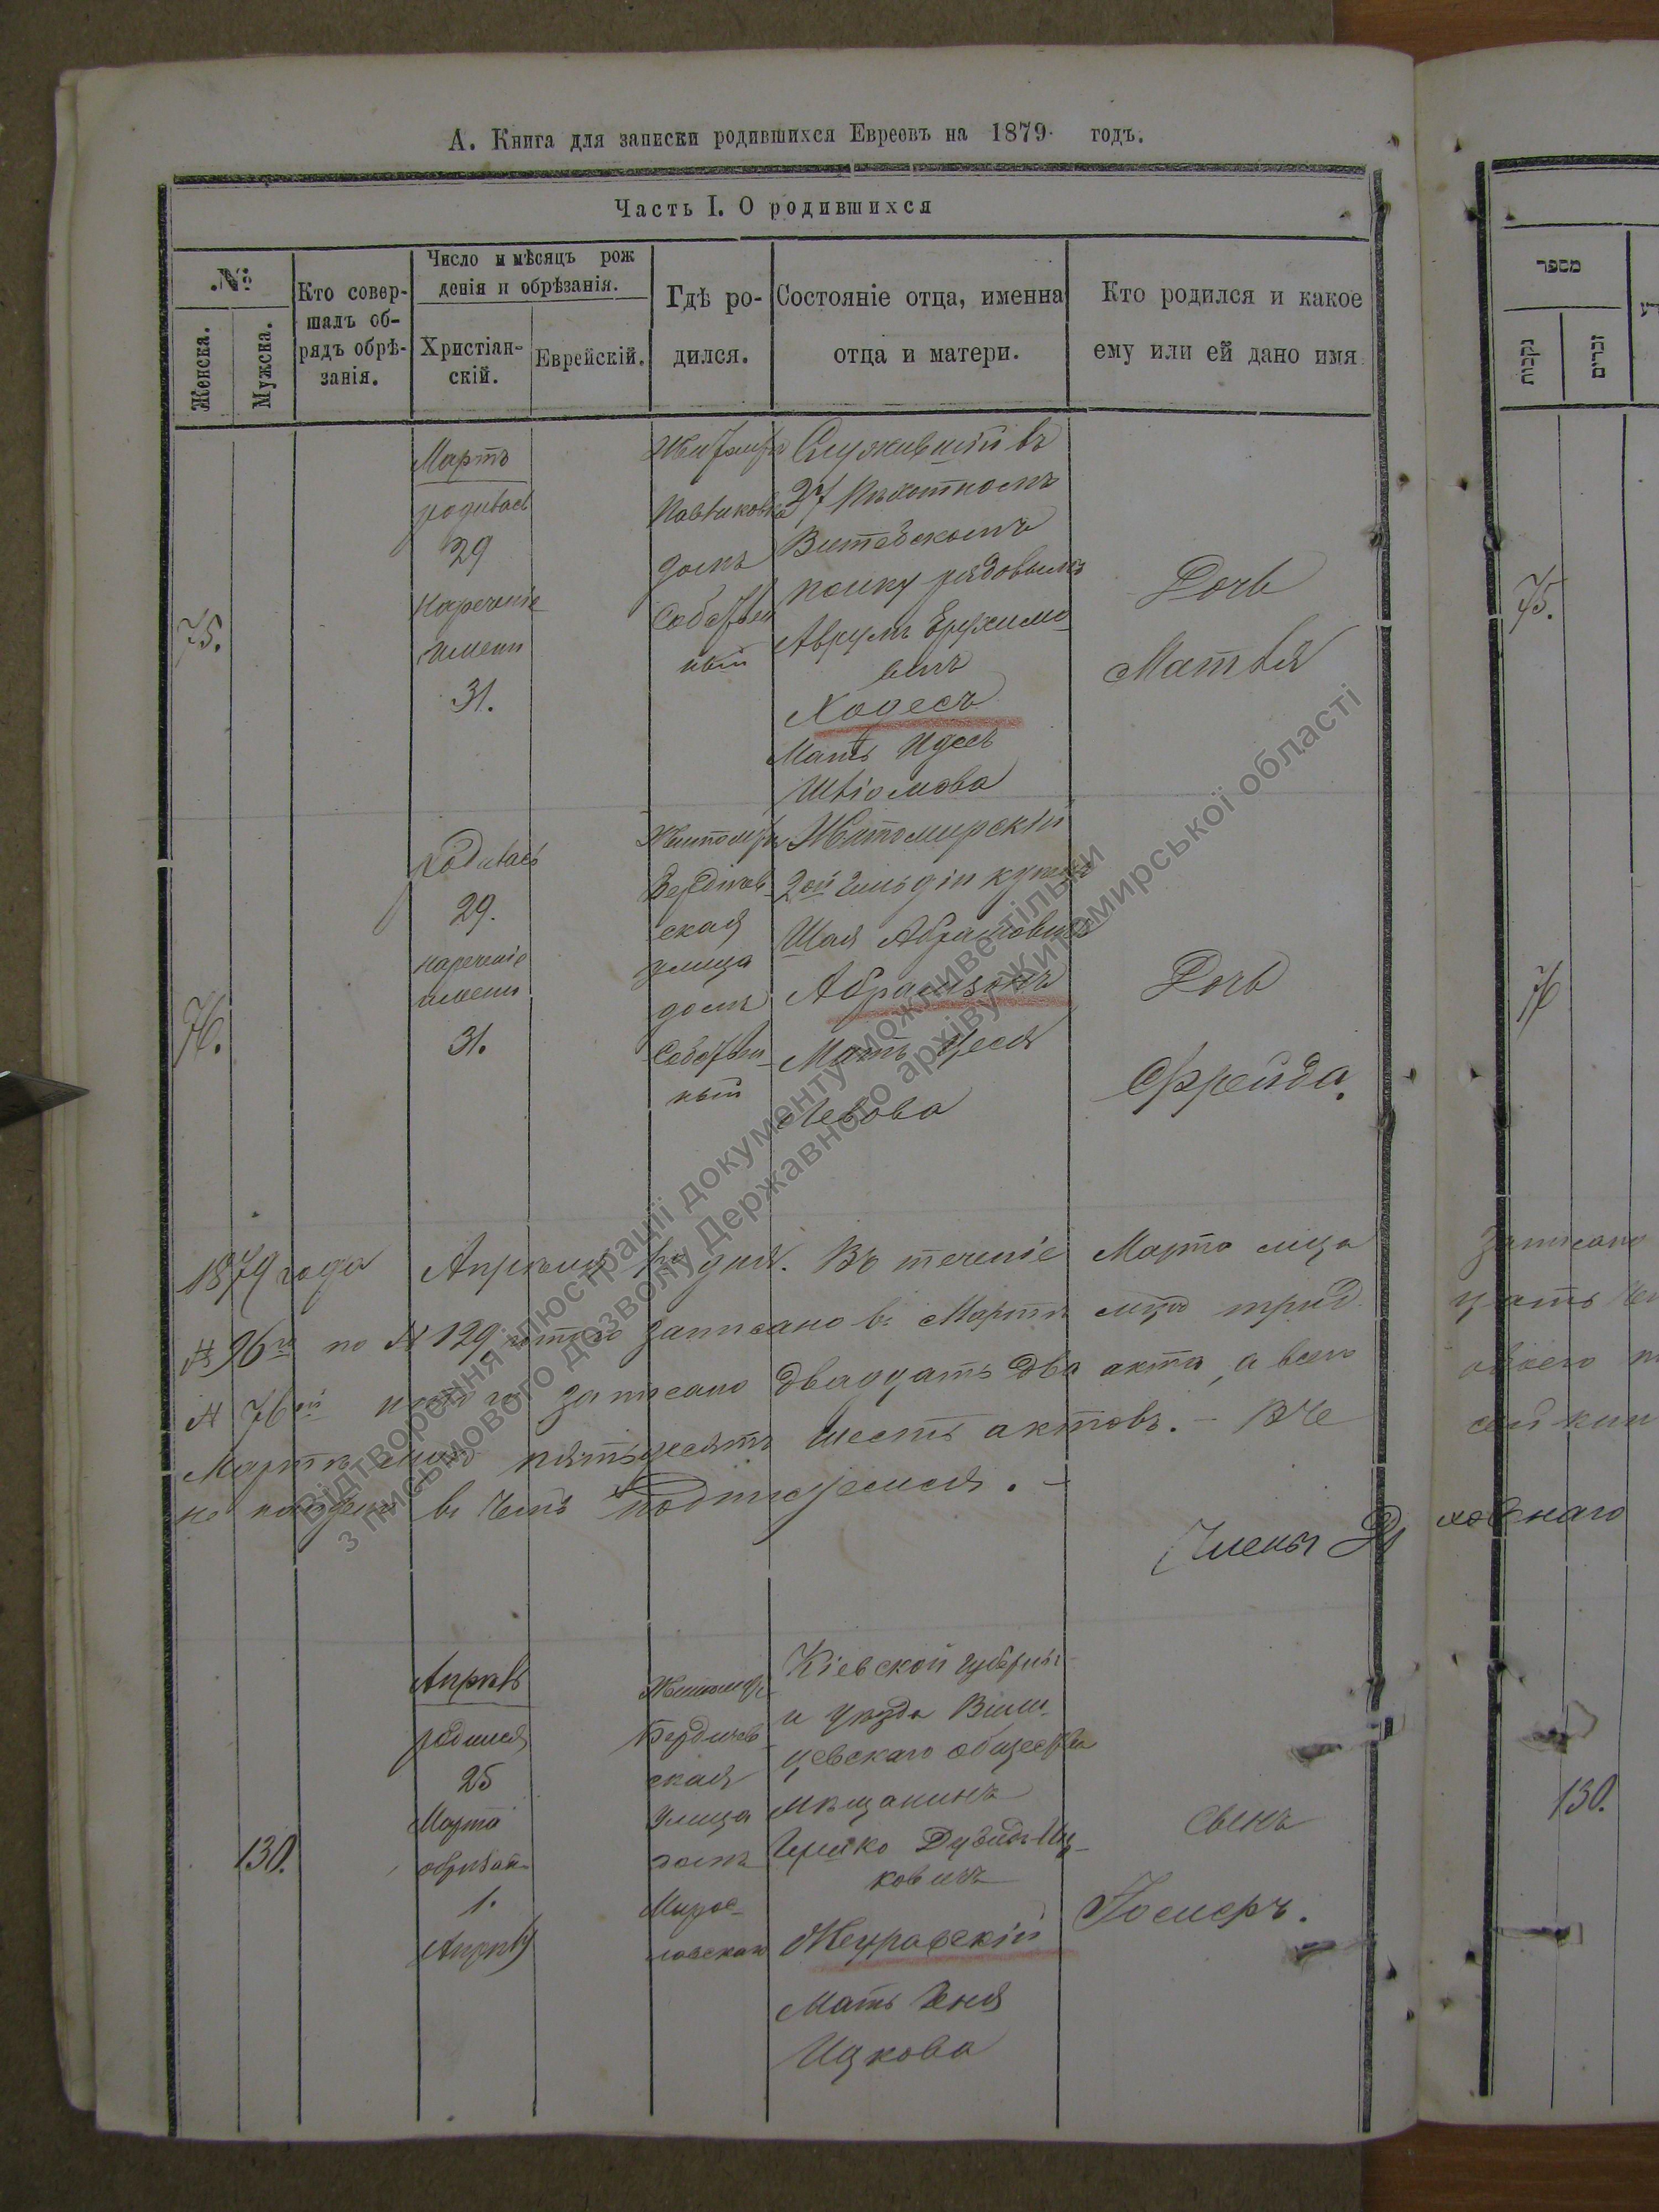 А. Книга для записки родившихся Евреевъ на 1879 годъ.
Часть I. О родившихся
№
Женска.
Мужска.
Кто совер-
шалъ об-
рядъ обрѣ-
занія.
Число и мѣсяцъ рож
денія и обрѣзанія.
Христіан-
скій.
Еврейскій.
Гдѣ ро-
дился.
Состояніе отца, именна
отца и матери.
Кто родился и какое
ему или ей дано имя
מספר
נקבות
זכרים
75.
Мартъ
родилась
29
нареченіе
имени
31.
Житомиръ
домъ
Собствен
ный
Служившій въ
27 Пѣхотномъ
Витебскомъ
полку рядовымъ
Аврумъ
Ходесъ
Мать Идесъ
Шліомова
Дочь
Матля
75.
76.
родилась
29.
нареченіе
имени
31.
Житомиръ
Бердичев-
ская
улица
домъ
Собствен-
ный
Житомирскій
2ой Гильдіи купецъ
Шая Абрамовичъ
Абрамзонъ
Мать Песя
Левова
Дочь
Фрейда.
76
1879 года Апрѣля 1го дня. Въ теченіе Марта м-ца
№ 96го по № 129 записано въ Мартѣ трид
№ 76ой записано двадцать два акта, а всего
Мартѣ пятьдесятъ шесть актовъ. - В че
не въ чемъ подписуемся. -
Записано
цать
Члены Ду
ховнаго
130.
Апрѣль
родился
25
Марта
обрѣзан.
1.
Апрѣля
Житомиръ
Бердичев-
ская
улица
домъ
Миро-
славская
Кіевской губерніи
и уѣзда
цевскаго общества
мѣщанинъ
Гершко Дувидъ-Иц-
ковичъ
Журавскій
Мать Геня
Ицкова
Сынъ
Госмеръ.
130.
Відтворення ілюстрації документу можливе тільки
з письмового дозволу Державного архіву Житомирської області